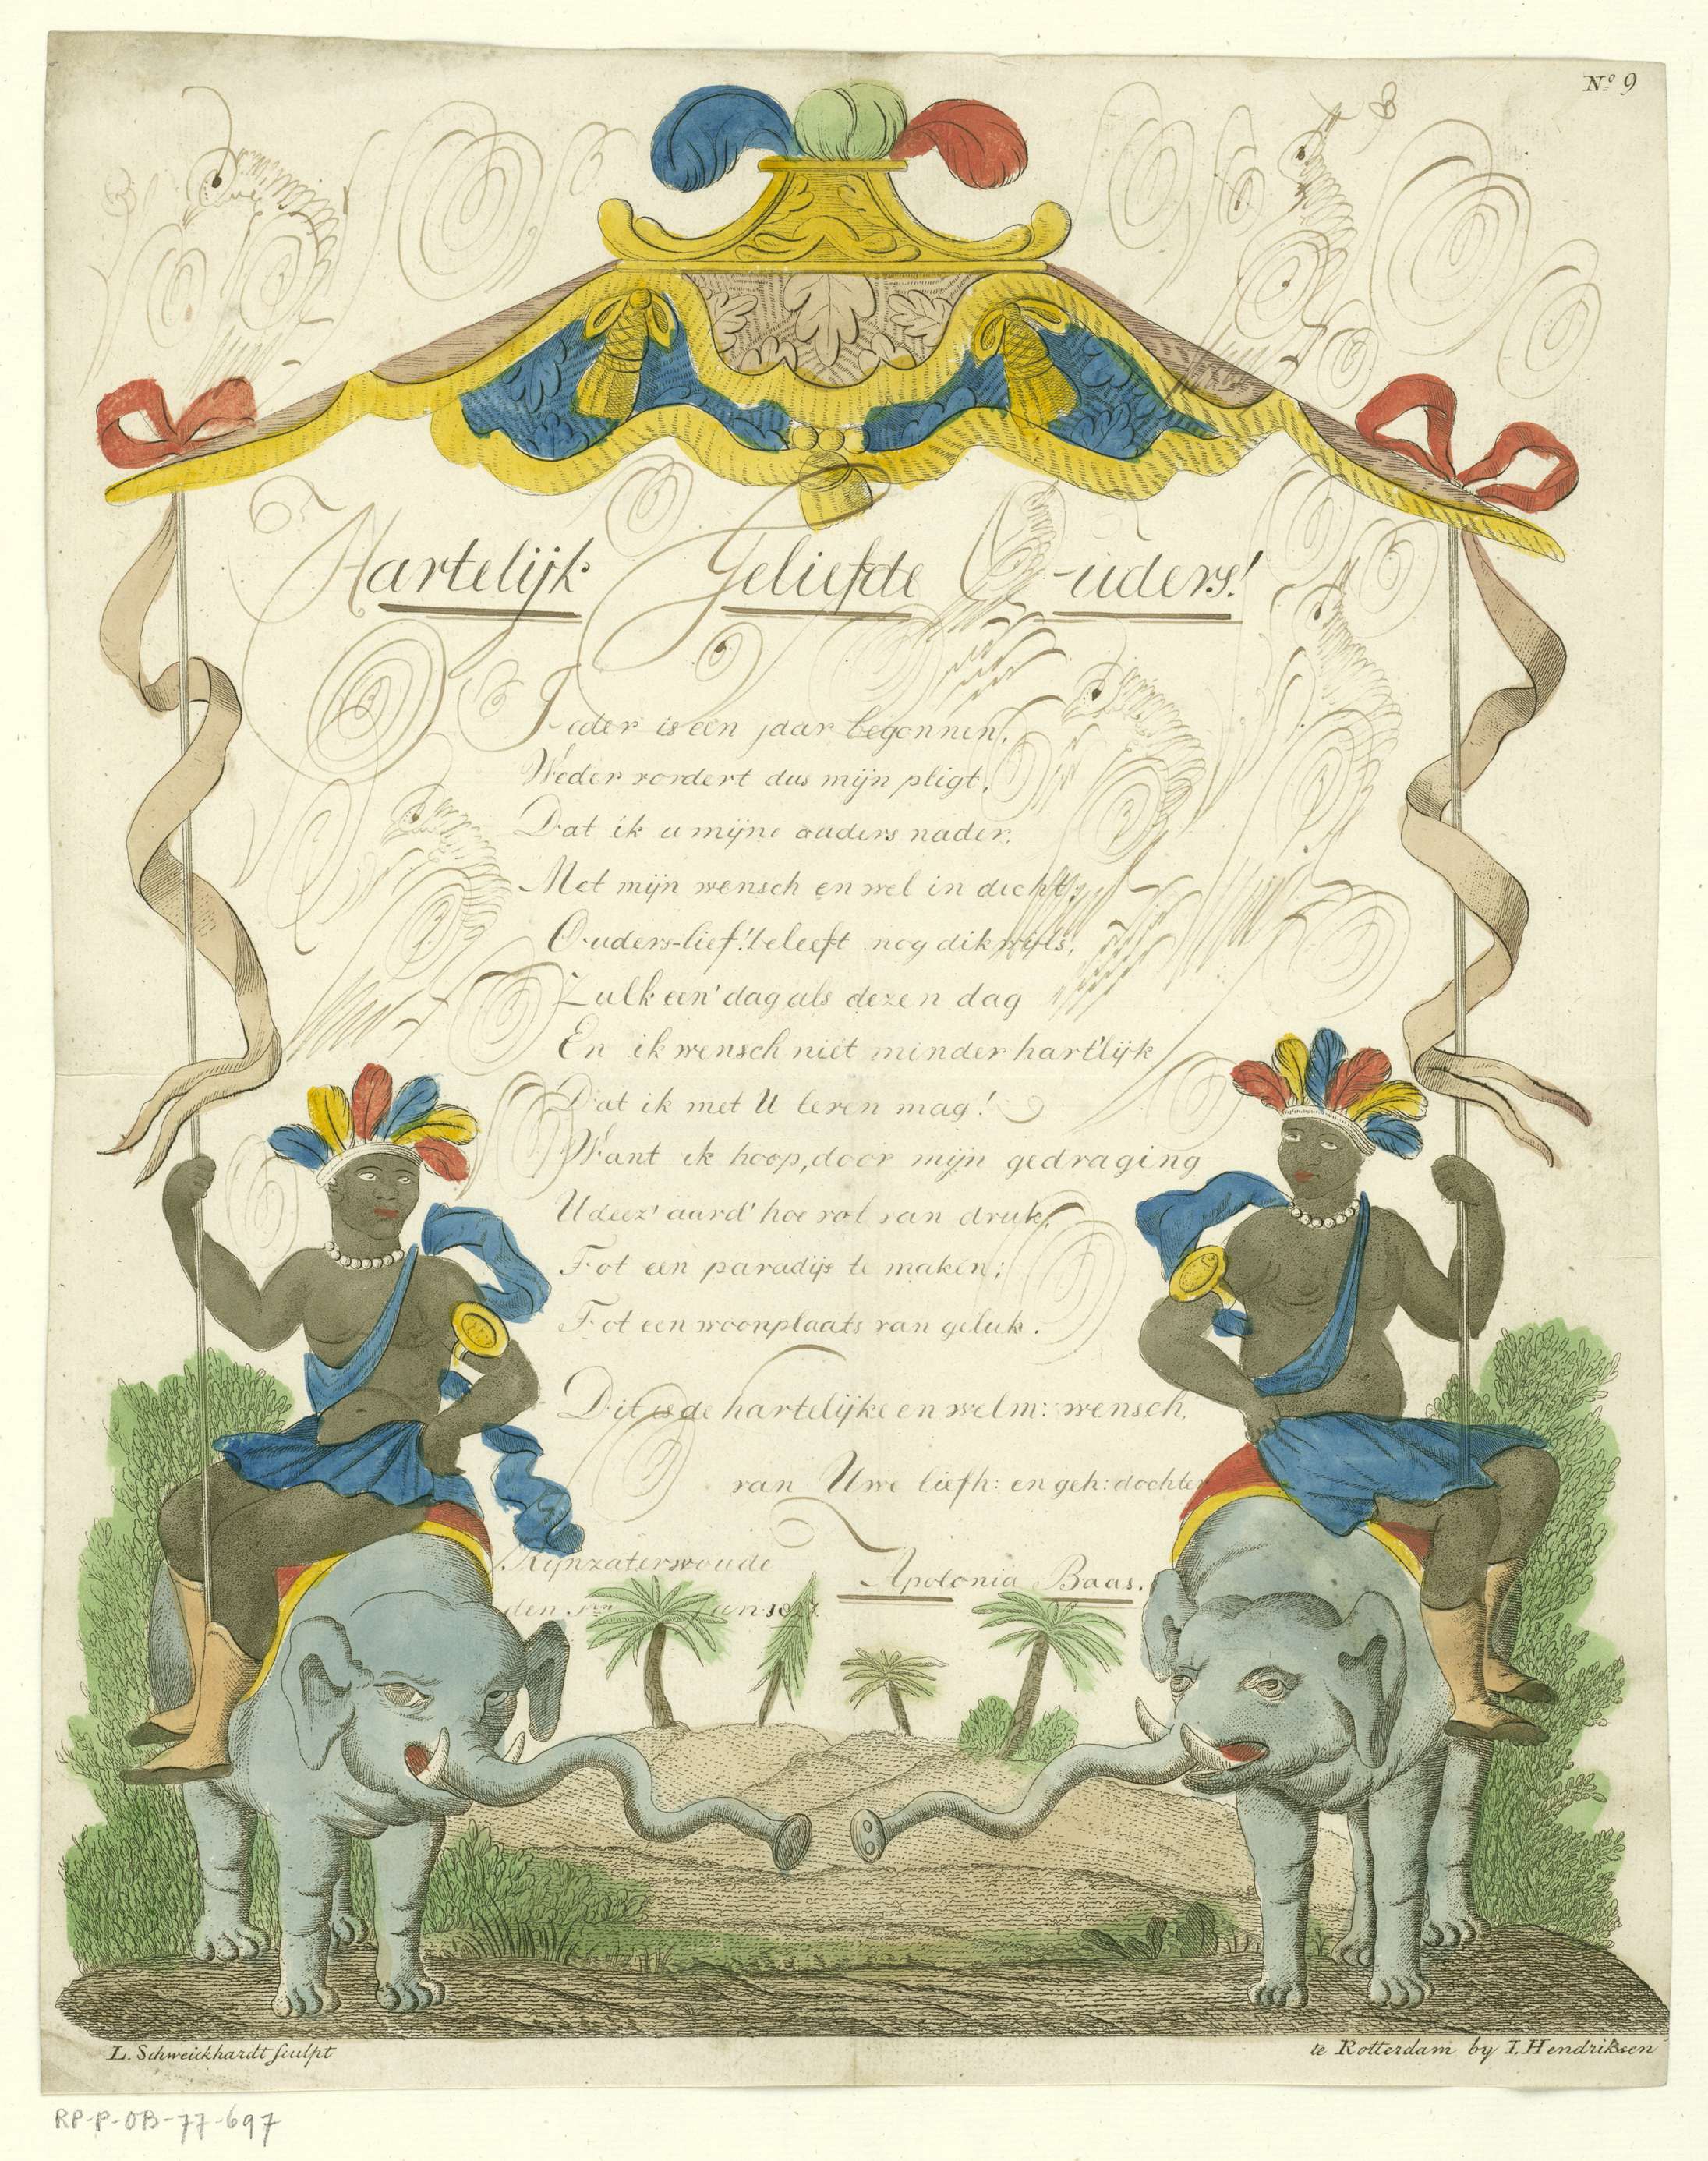 Nº 9
Hartelijk Geliefde Ouders!
Ieder is een jaar begonnen,
Weder vordert dus mijn pligt,
Dat ik u mijne ouders nader,
Met mijn wensch en wel in dicht;
Ouders-lief! beleeft nog dikwijls,
Zulk een' dag als dezen dag
En ik wensch niet minder hart'lijk
Dat ik met U leven mag!
Want ik hoop, door mijn gedraging
U deez' aard' hoe vol van druk,
Tot een paradijs te maken;
Tot een woonplaats van geluk.
Dit is de hartelijke en welm: wensch,
van Uwe liefh: en geh: dochter
Rijnzaterwoude
Apolonia Baas.
den Jan
L. Schweickhardt sculpt
te Rotterdam by I. Hendriksen
RP-P-OB-77-697